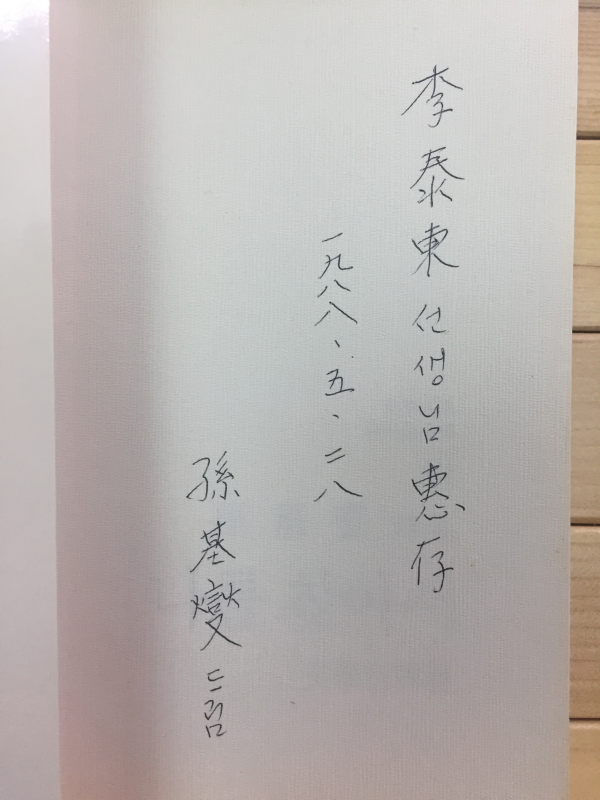 李泰東선생님惠存
一九八八、五、二八
孫基燮드림